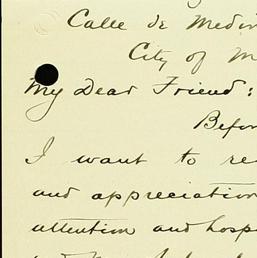 Calle de Medin
City of M
My Dear Friend:
Befor
I want to re
and appreciation
attention and hosp